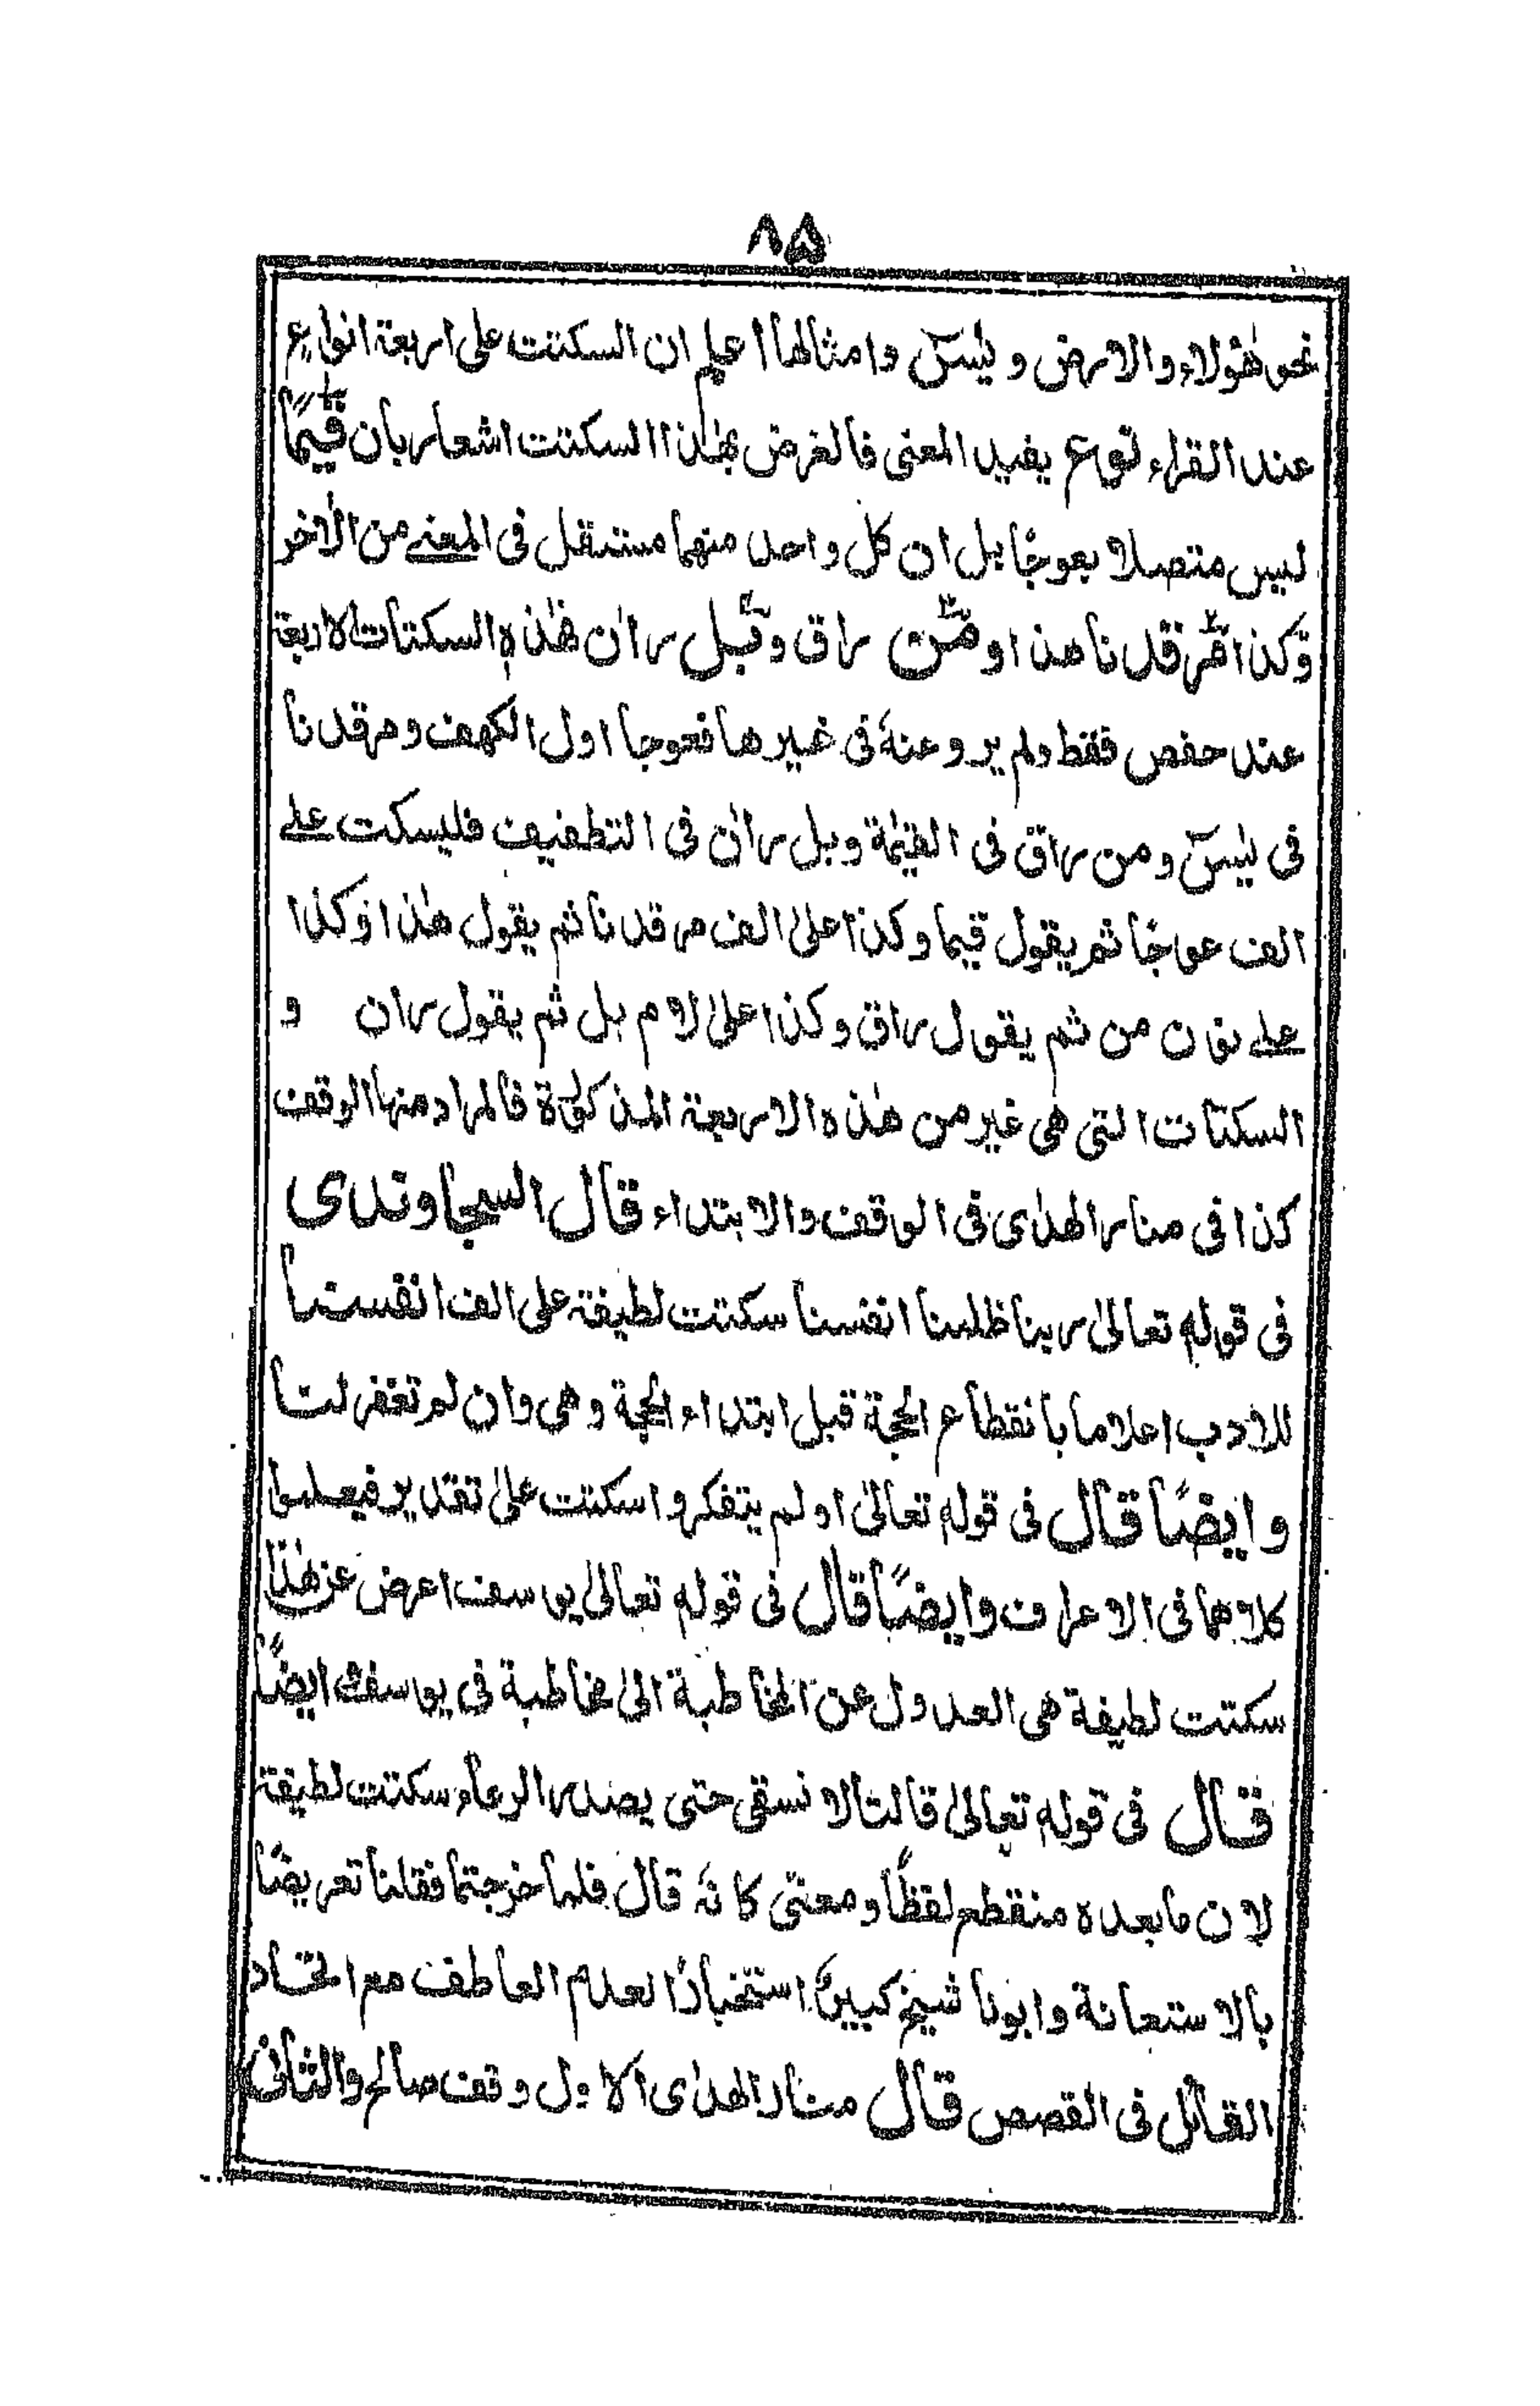 ٨٥
نحو هؤلاء والارض و يٰسٓ وامثالها اعلم ان السكتت على اربعة انواع
عند القراء نوع يفيد المعنى فالغرض بهٰذا السكتت اشعار بان قيّمًا
ليس متصلا بعوجًا بل ان كل واحد منهما مستقل فى المعنے من الاٰخر
وكذا مرقدنا هذا و من راق و بل ران هٰذه السكتات الاربعة
عند حفص فقط ولم يرو عنهٗ فى غيرها فعوجا اول الكهف ومرقدنا
فى يٰسٓ ومن راق فى القيٰمة وبل ران فى التطفيف فليسكت علے
الف عوجًا ثم يقول قيما وكذا علىٰ الف مرقدنا ثم يقول هٰذا وكذا
علے نون من ثم يقول راق وكذا علىٰ لام بل ثم يقول ران و
السكتات التى هى غير من هٰذه الاربعة المذكورة فالمراد منها الوقف
كذا فى منار الهدٰى فى الوقف والابتداء قال السجاوندى
فى قوله تعالىٰ ربنا ظلمنا انفسنا سكتت لطيفة على الف انفسنا
للادب اعلاما بانقطاع الحجة قبل ابتداء الحجة وهى وان لم تغفر لنا
وايضًا قال فى قوله تعالىٰ اولم يتفكروا سكتت علىٰ تقدير فيعلموا
كلاهما فى الاعراف وايضًا قال فى قوله تعالىٰ يوسف اعرض عن هٰذا
سكتت لطيفة هى العدول عن المخاطبة الىٰ مخاطبة فى يوسف ايضًا
قال فى قوله تعالىٰ قالتا لا نسقى حتى يصدر الرعاء سكتت لطيفة
لان مابعده منقطع لفظًا ومعنىً كانهٗ قال فلما خرجتما فقلنا تعريضًا
بالاستعانة وابونا شيخ كبير استخبارًا لعدم العاطف مع اتحاد
القائل فى القصص قال منار الهدٰى الاول وقف صالح والثانى